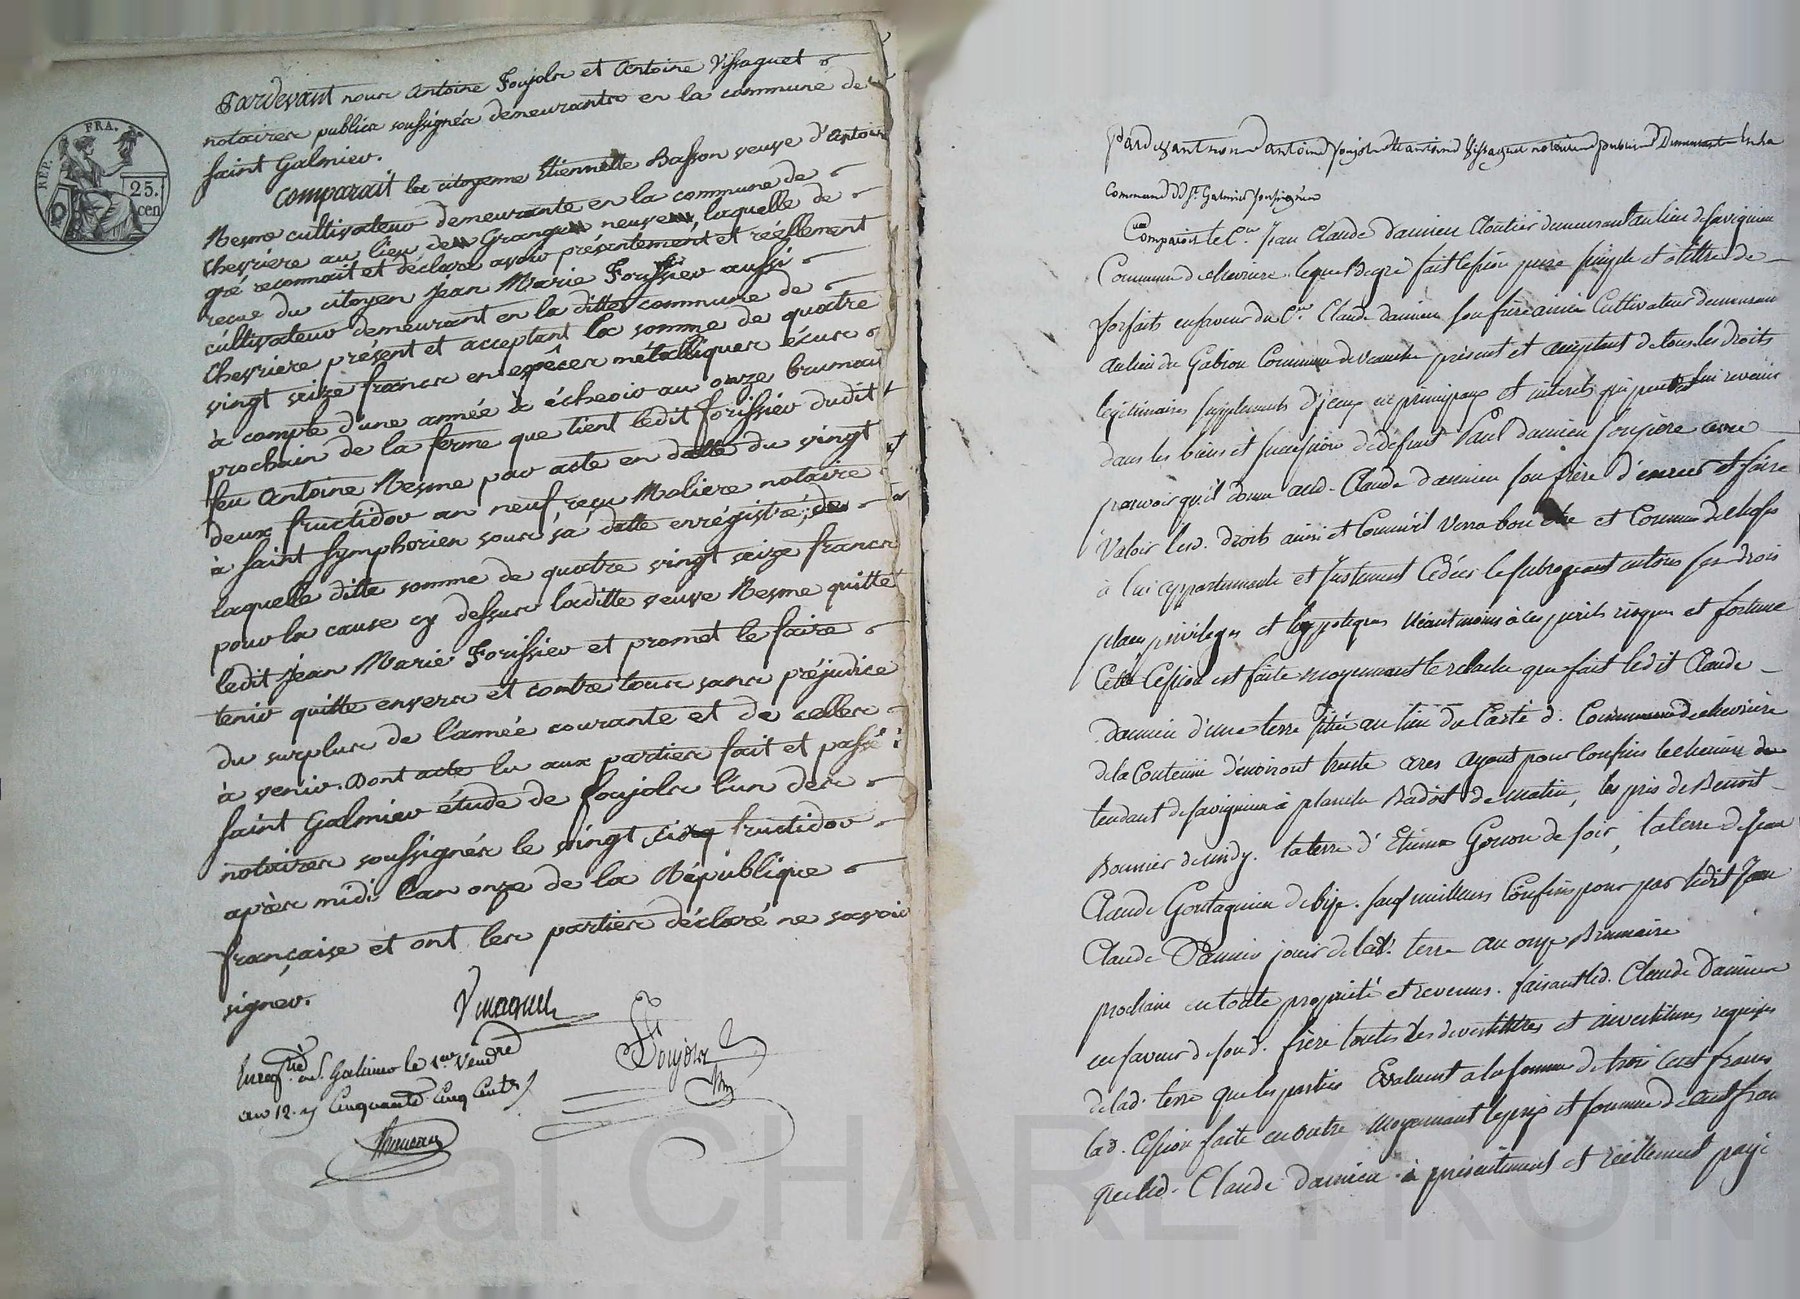 REP. FRA.
25. cen
Pardevant nous Antoine Foujols et Antoine Vissaguet
notaires publics soussignés demeurants en la commune de
saint Galmier.
Comparait la citoyenne Etiennette Basson veuve d'Antoine
Nesme cultivateur demeurante en la commune de
Chevriere au lieu de Grange neuve, laquelle de
gré reconnait et déclare avoir présentement et reellement
reçue du citoyen Jean Marie Forissier aussi
cultivateur demeurant en la ditte commune de
Chevriere présent et acceptant la somme de quatre
vingt seize francs en espêces métalliques écus
à compte d'une année à échevoir au onze brumair
prochain de la ferme que tient ledit forissier dudit
feu Antoine Nesme par acte en datte du vingt
deux fructidor an neuf, reçu Moliere notaire
à saint Symphorien sous sa datte enrégistré; de
laquelle ditte somme de quatre vingt seize francs
pour la cause cy dessus laditte veuve Nesme quitte
ledit Jean Marie Forissier et promet le faire
tenir quitte envers et contre tous sans préjudice
du surplus de l'année courante et de celles
à venir. Dont acte lu aux parties fait et passé
saint Galmier étude de foujols l'un des
notaires soussignés le vingt cinq fructidor
après midi l'an onze de la République
française et ont les parties déclaré ne savoir
signer.
Foujols
Enregtré à St. Galmier le 1er Vendre
an 12. cinquante cinq Cents
Pardevant nous antoine foujols et antoine Vissaguet notaires publics Demeurants En la
Commune de St. Galmier soussignés
Comparait le Cen. Jean Claude Damien Cloutier demeurant au lieu de Savignieu
Commune de chevriere. lequel De gré fait cession pure simple et à tittre de
forfaits en faveur du Cen. Claude Damien son frère ainé Cultivateur demeurant
au lieu du Gabion Commune de veauche présent et acceptant de tous les droits
légitimaires supplements d'iceux en principaux et interets qui peuvent lui revenir
dans les biens et succession de defunt Paul Damien son père avec
pouvoir qu'il donne aud. Claude Damien son frère d'exercer et faire
Valoir lesd. droits ainsi et Comme il verra bon être et Comme de choses
à lui appartenante et justement Cédées le subrogeant en tous ses drois
place, privileges et hypoteques Néantmoins à ses perils risques et fortune
Cette Cession est faite moyennant le relache que fait ledit Claude
Damien d'une terre située au lieu du Carté d. Commune de chevriere
de la Contenue d'environt trente ares ayant pour Confins le chemin
tendant de savignieu à planche Badot de matin, les prés de Benoit
Bonnier de midy. la terre d'Etienne Goujon de soir, la terre de Jean
Claude Goutagnieu de bise. sauf meilleurs Confins pour par ledit Jean
Claude Damien jouir de lad. terre au onze Brumaire
prochain en toute proprieté et revenus. faisant led. Claude Damien
en faveur de sond. frère toutes les devestitures et investitures requises
de lad. terre que les parties Evaluent à la somme de trois cent francs
lad. Cession faite en outre moyennant le prix et somme de cent fran
que led. Claude Damien à présentement et réellement payé
ascal CHAREYRON